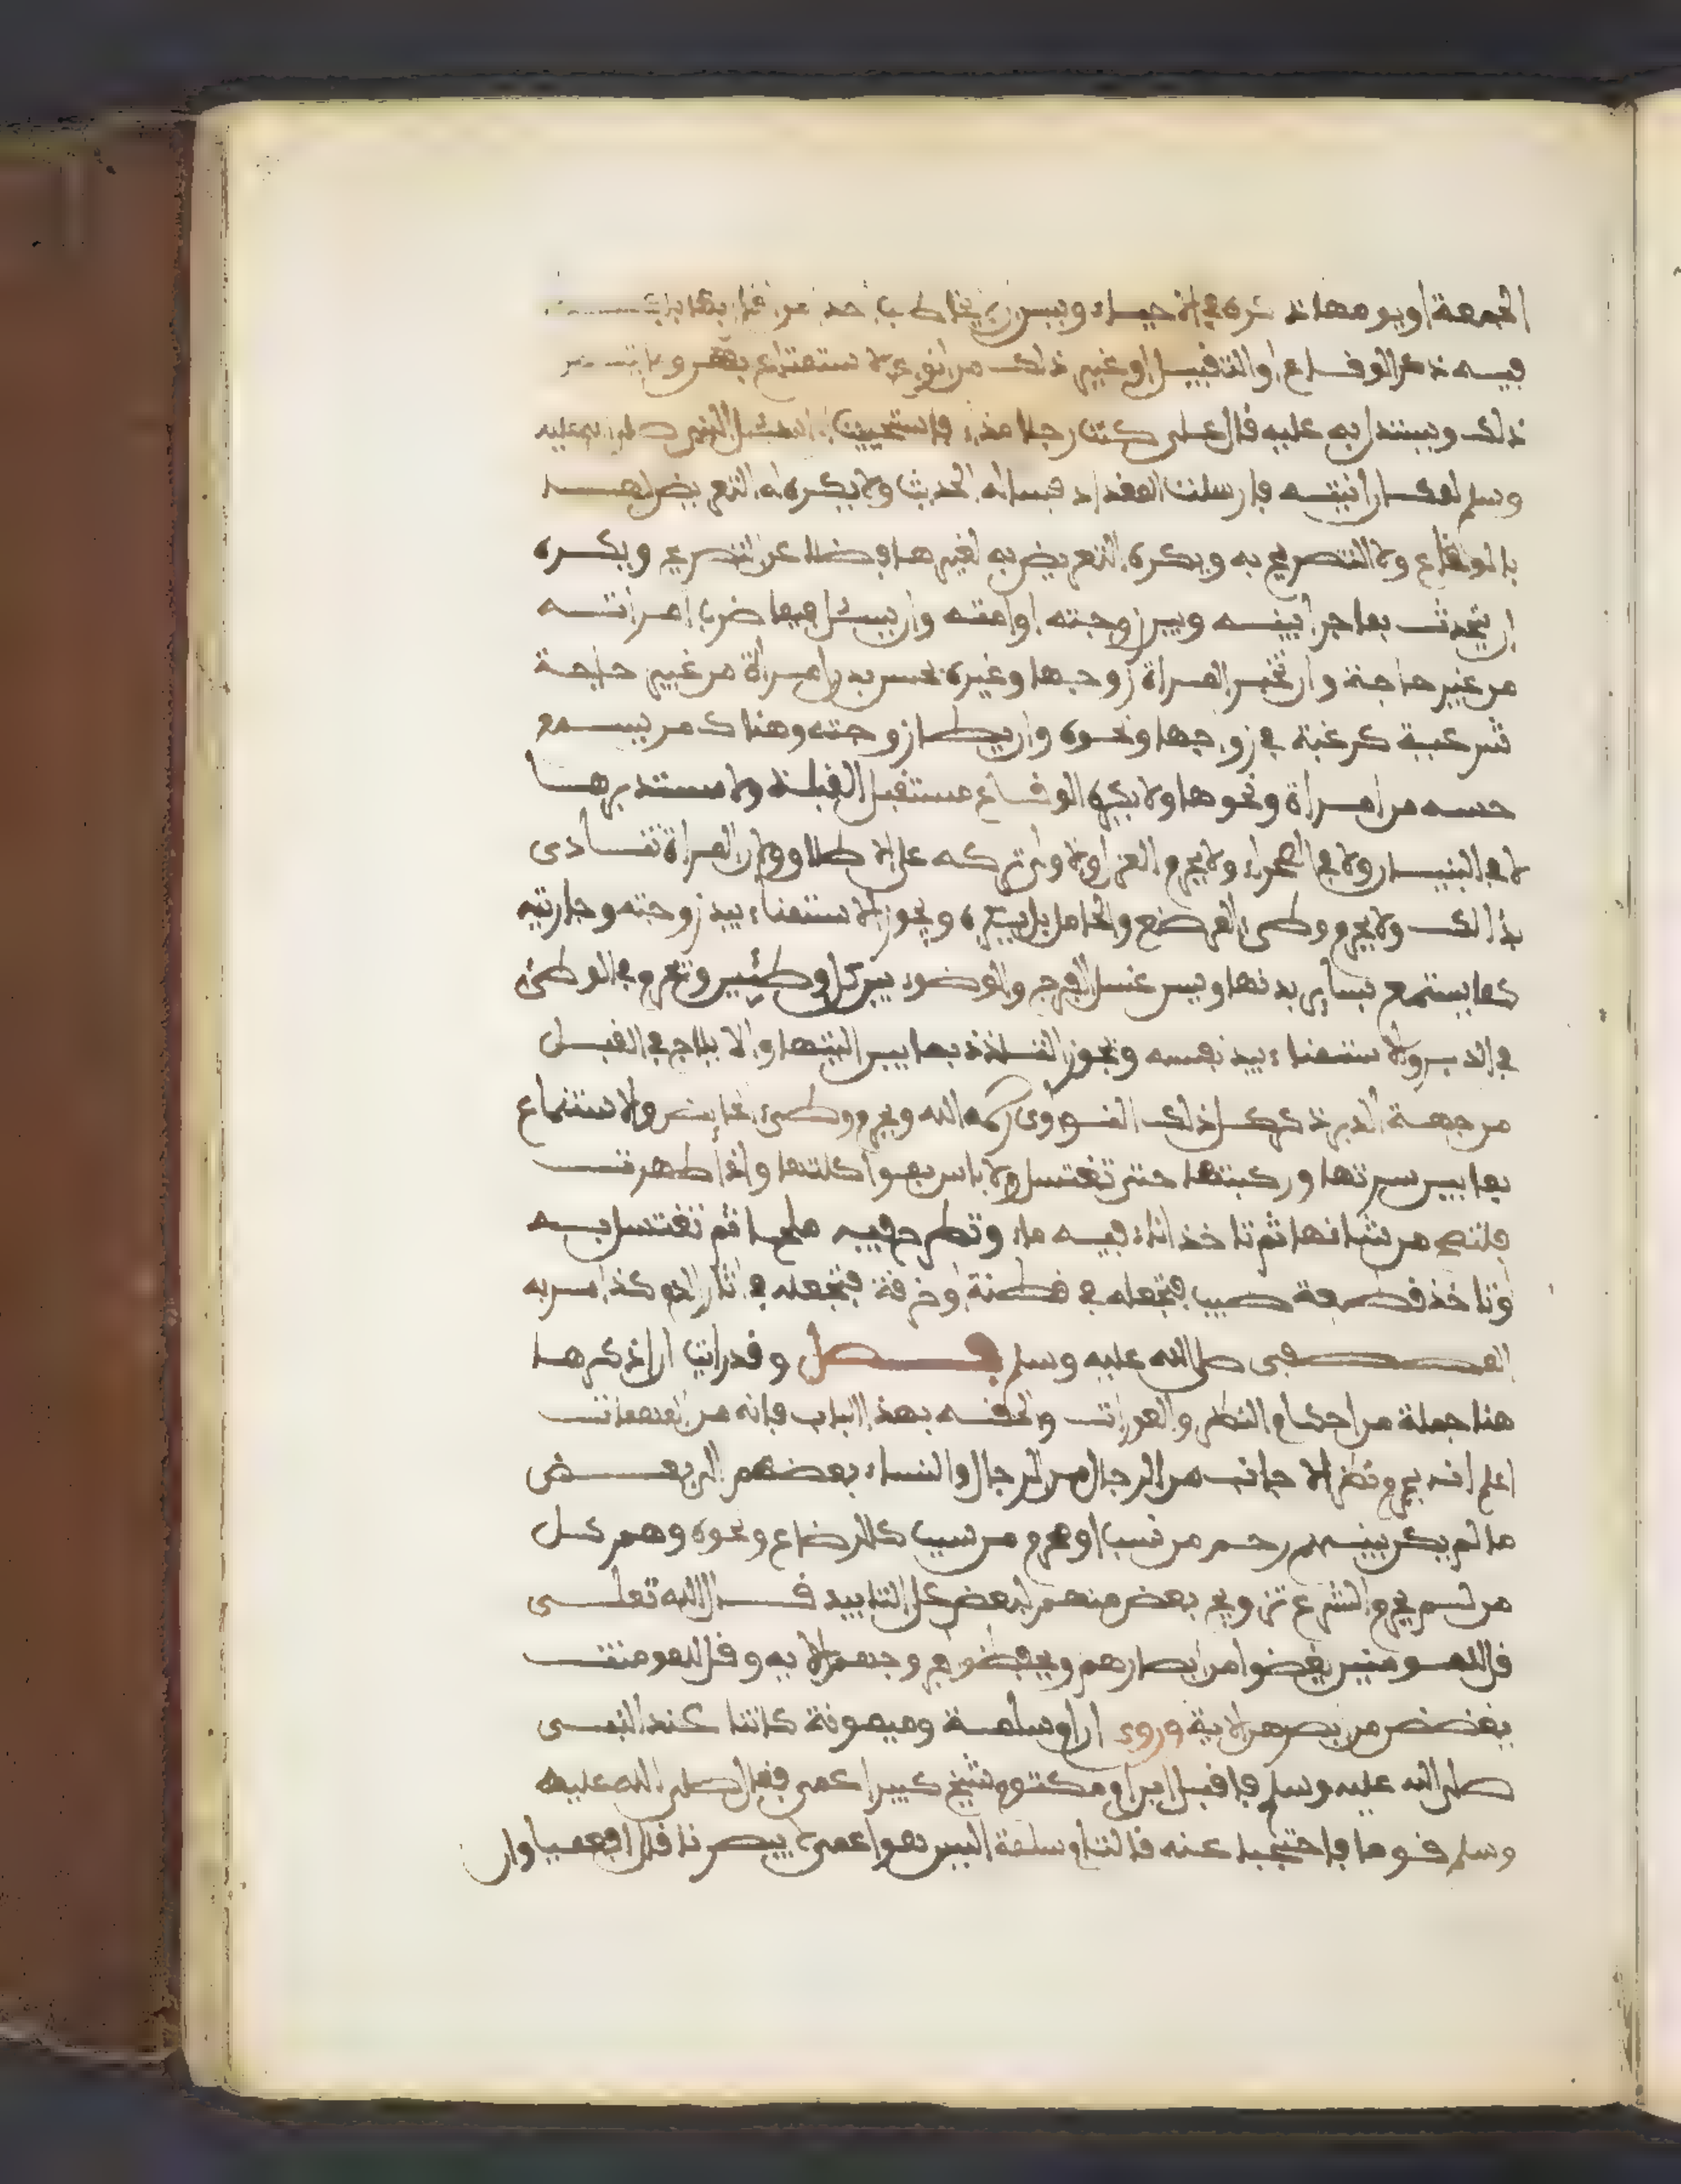 الجمعة او يومها ذكره في الاحياء ويسن ان لا يخاطب احد من اقاربها بما
فيه ذكر الوقاع او التقبيل او غير ذلك من انواع الاستمتاع بهن وما يتضمن
ذلك ويستدل به عليه قال علي كنت رجلا مذاء فاستحييت ان اسئل النبي صلى الله عليه
وسلم لمكان ابنته فارسلت المقداد فسأله الحديث ولا يكره له التعريض لها
بالوقاع ولا التصريح به ويكره التعريض به لغيرها فضلا عن التصريح ويكره
ان يتحدث بما جرى بينه وبين زوجته او امته وان يسئل فيما ضرب امراته
من غير حاجة وان تخبر المراة زوجها وغيره بحسن بدن امراة من غير حاجة
شرعية كرغبة في زواجها ونحوه وان يطا زوجته وهناك من يسمع
حسه من امراة ونحوها ولا يكره الوقاع مستقبل القبلة ولا مستدبرها
لا في البنيان ولا في الصحراء ولا يحرم العزل والاولى تركه على الاطلاق ولان المراة تتاذى
بذالك ولا يحرم وطىء المرضع والحامل بل يكره ويجوز الاستمناء بيد زوجته وجاريته
كما يستمتع بساير بدنها ويسن غسل الفرج والوضوء بين كل وطئين ويحرم الوطىء
في الدبر والاستمناء بيد نفسه ويجوز التلذذ بما بين اليتيها والايلاج في القبل
من جهة الدبر ذكر كل ذلك النووي رحمه الله ويحرم وطىء الحايض والاستمتاع
بما بين سرتها وركبتها حتى تغتسل ولا باس بمواكلتها واذا طهرت
فلتنح من شانها ثم تاخذ اناء فيه ماء وتطرح فيه ملحا ثم تغتسل به
وتاخذ قطعة طيب فتجعله في قطنة او خرقة فتجعله في اثار الدم كذا امر به
المصطفى صلى الله عليه وسلم فصل وقد رايت ان اذكر ها
هنا جملة من احكام النظر والعورات والحقه بهذا الباب فانه من المهمات
اعلم انه يحرم نظر الاجانب من الرجال من الرجال والنساء بعضهم الى بعض
ما لم يكن بينهم رحم من نسب او محرم من سبب كالرضاع ونحوه وهم كل
من لم يحرم الشرع تزويج بعض منهم لبعض على التابيد قال الله تعلى
قل للمومنين يغضوا من ابصارهم ويحفظوا فروجهم الاية وقل للمومنت
يغضضن من ابصرهن الاية وروي ان ام سلمة وميمونة كانتا عند النبي
صلى الله عليه وسلم فاقبل ابن ام مكتوم شيخ كبير اعمى فقال صلى الله عليه
وسلم قوما فاحتجبا عنه قالت ام سلمة اليس هو اعمى لا يبصرنا قال افعمياوان